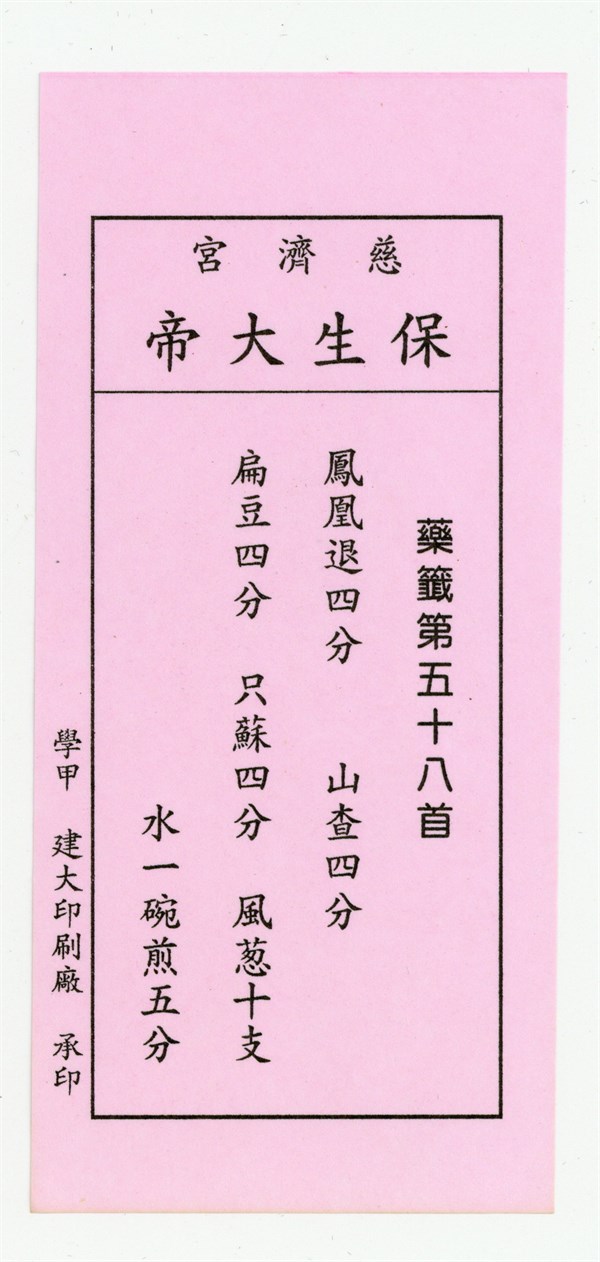 慈濟宮
保生大帝
藥籤第五十八首
鳳凰退四分　山查四分
扁豆四分　只蘇四分　風葱十支
水一碗煎五分
學甲　建大印刷廠　承印